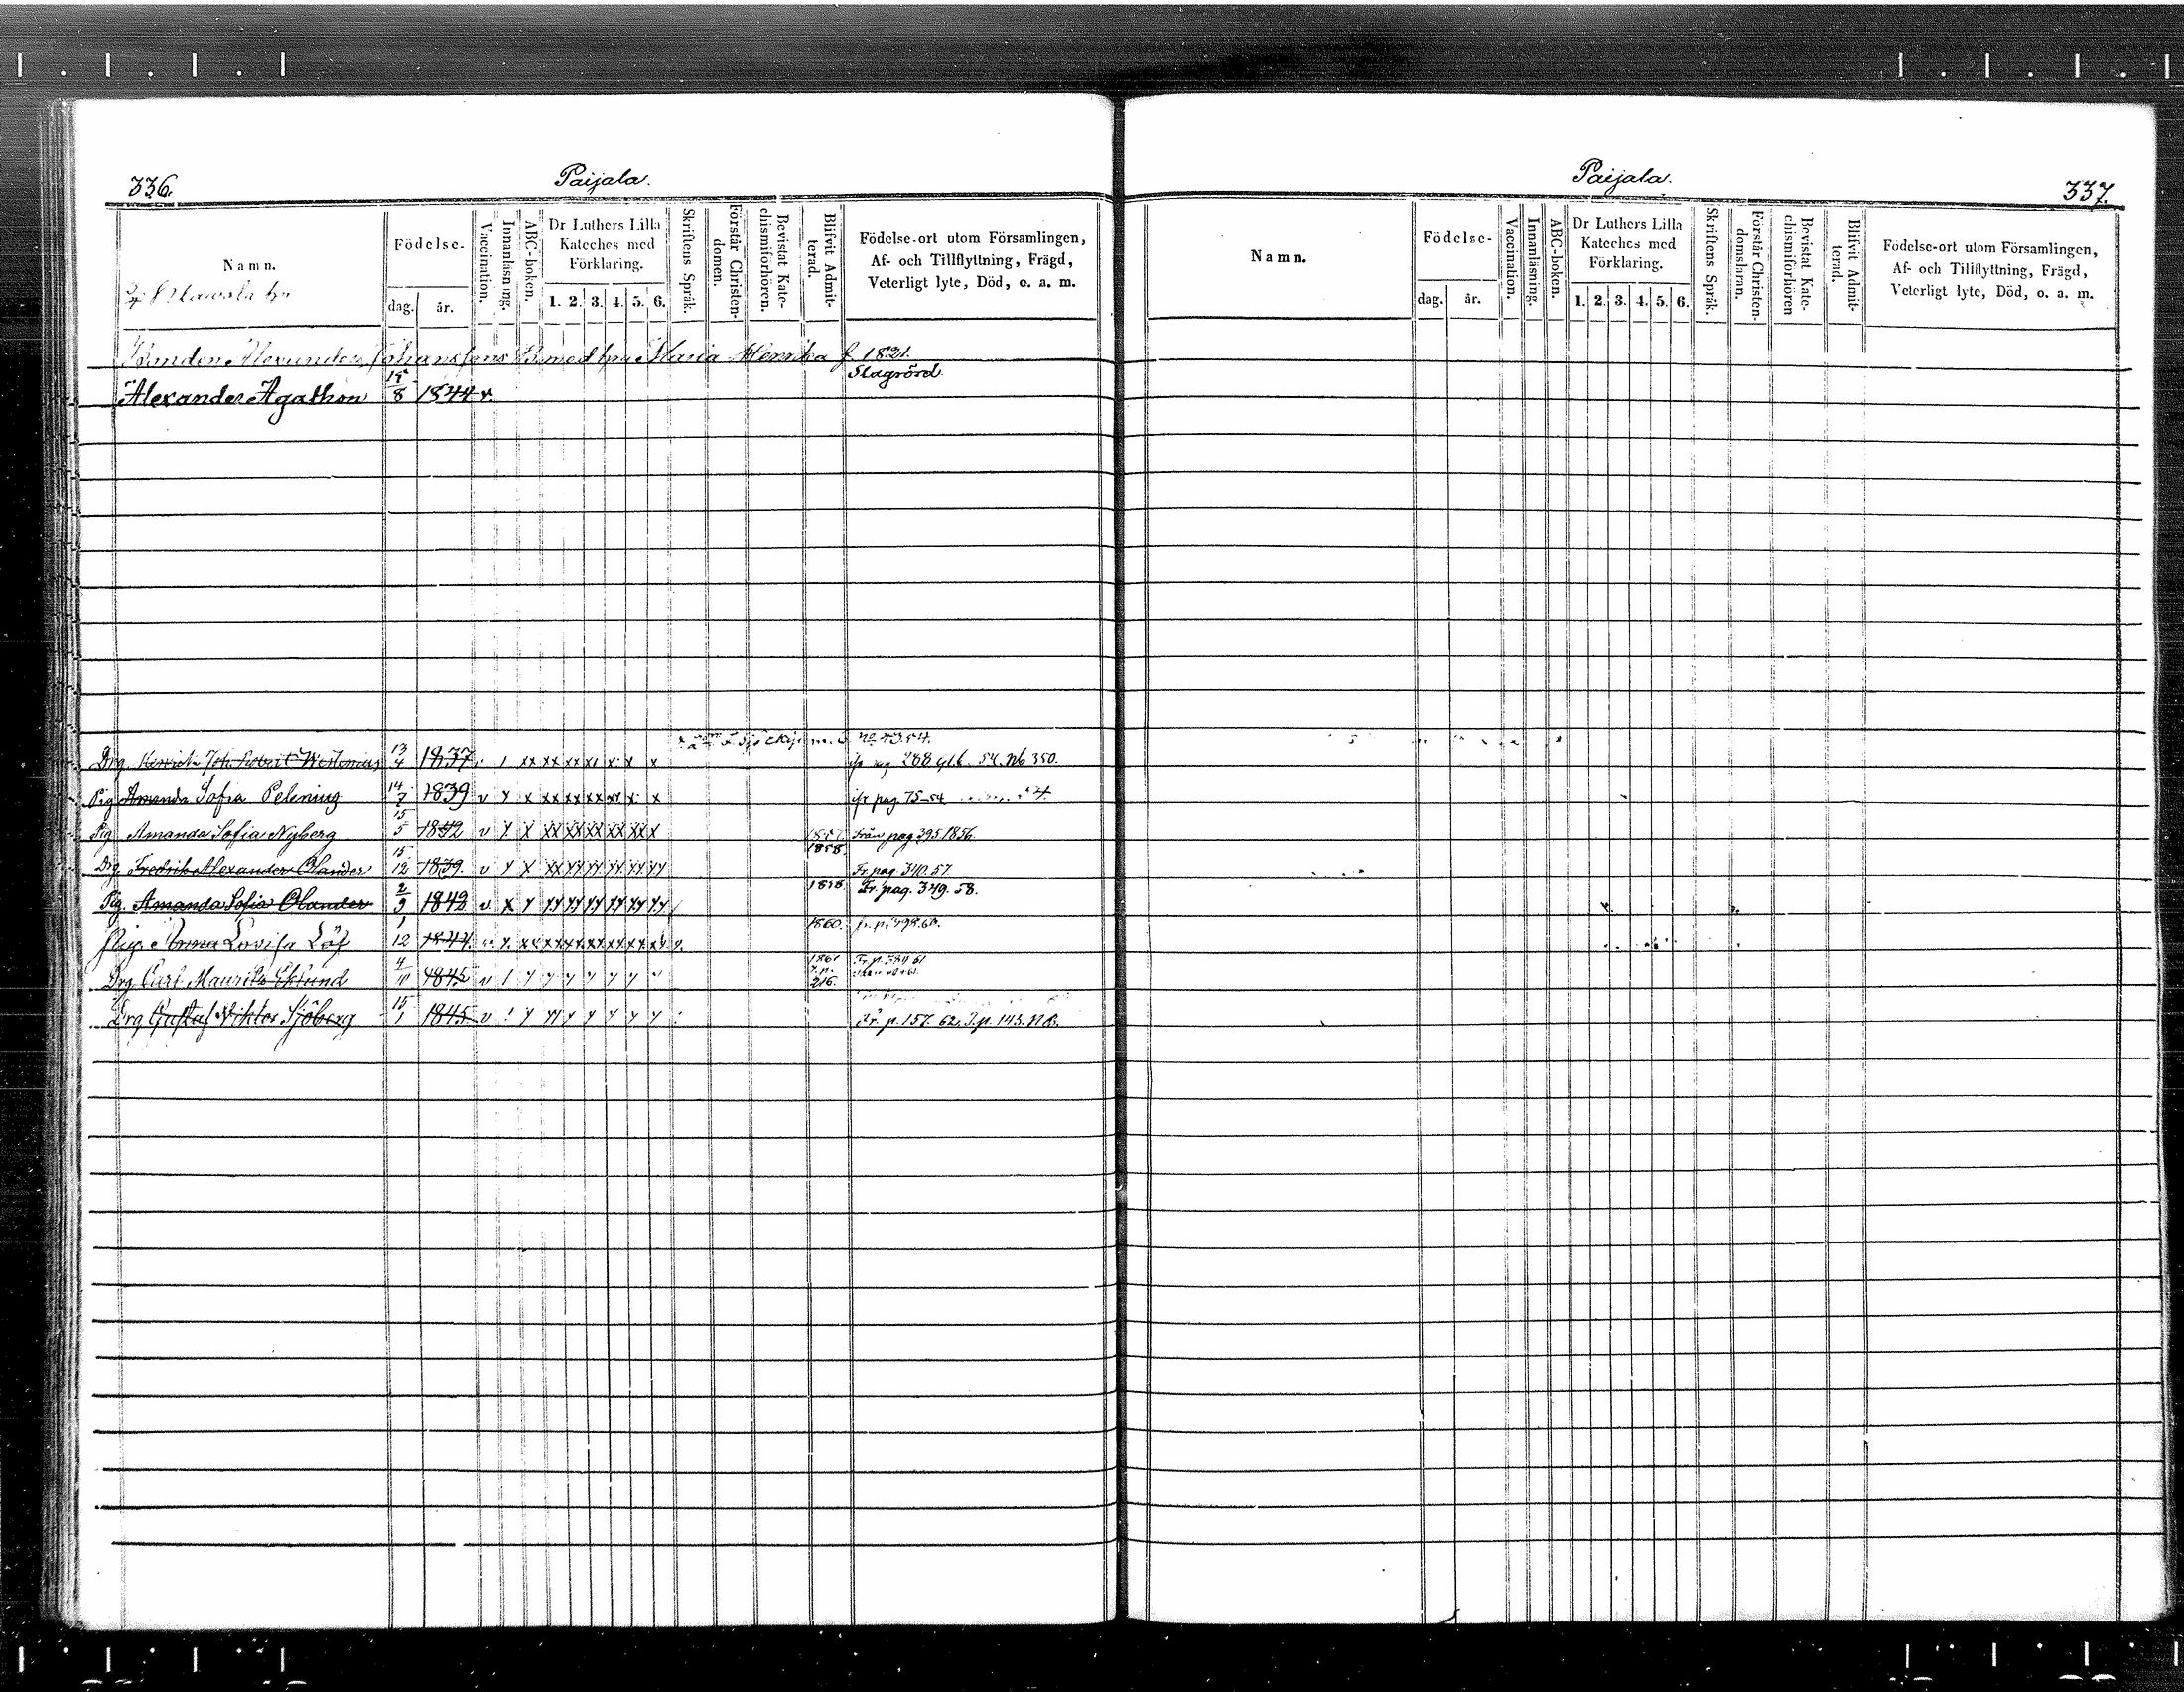 336.
Paijala.
Namn.
Födelse-
dag.
år.
Vaccination.
Innanläsning.
ABC-boken.
Dr Luthers Lilla
Kateches med
Förklaring.
1. 2. 3. 4. 5. 6.
Skriftens Språk.
Förstår Christen-
domen.
Bevistat Kate-
chismiförhören.
Blifvit Admit-
terad.
Födelse-ort utom Församlingen,
Af- och Tillflyttning, Frägd,
Veterligt lyte, Död, o. a. m.
Bonden Alexander Johanssons med hu Maria Henrika f 1821.
Slagrörd.
Alexander Agathon 8 1844 v.
Drg. Henrik Joh. Robert Westenius 13/4 1837 x x x x x x
Pig Amanda Sofia Pelening 14/7 1839 v x x xx xx xx xx x x ifr pag 75-54
Pig Amanda Sofia Nyberg 15/5 1842 v x x xx xx xx xx xx x Från pag 395 1856.
Drg Fredrik Alexander Olander 15/12 1839. v x x 1858. Fr. pag. 340. 57.
Pig. Amanda Sofia Olander 1842 v x 1858 Fr. pag. 349. 58.
Pig. Anna Lovisa Löf 1/12 1844. 1860.
Drg Carl Maurits Eklund 4 1845 v 1861 216.
Drg Gustaf Viktor Sjöberg 15/1 1845 v Fr. p. 157. 62. T. p. 143. NB.
Paijala.
337.
Namn.
Födelse-
dag.
år.
Vaccination.
Innanläsning.
ABC-boken.
Dr Luthers Lilla
Kateches med
Förklaring.
1. 2. 3. 4. 5. 6.
Skriftens Språk.
Förstår Christen-
domsläran.
Bevistat Kate-
chismiförhören
Blifvit Admit-
terad.
Födelse-ort utom Församlingen,
Af- och Tillflyttning, Frägd,
Veterligt lyte, Död, o. a. m.